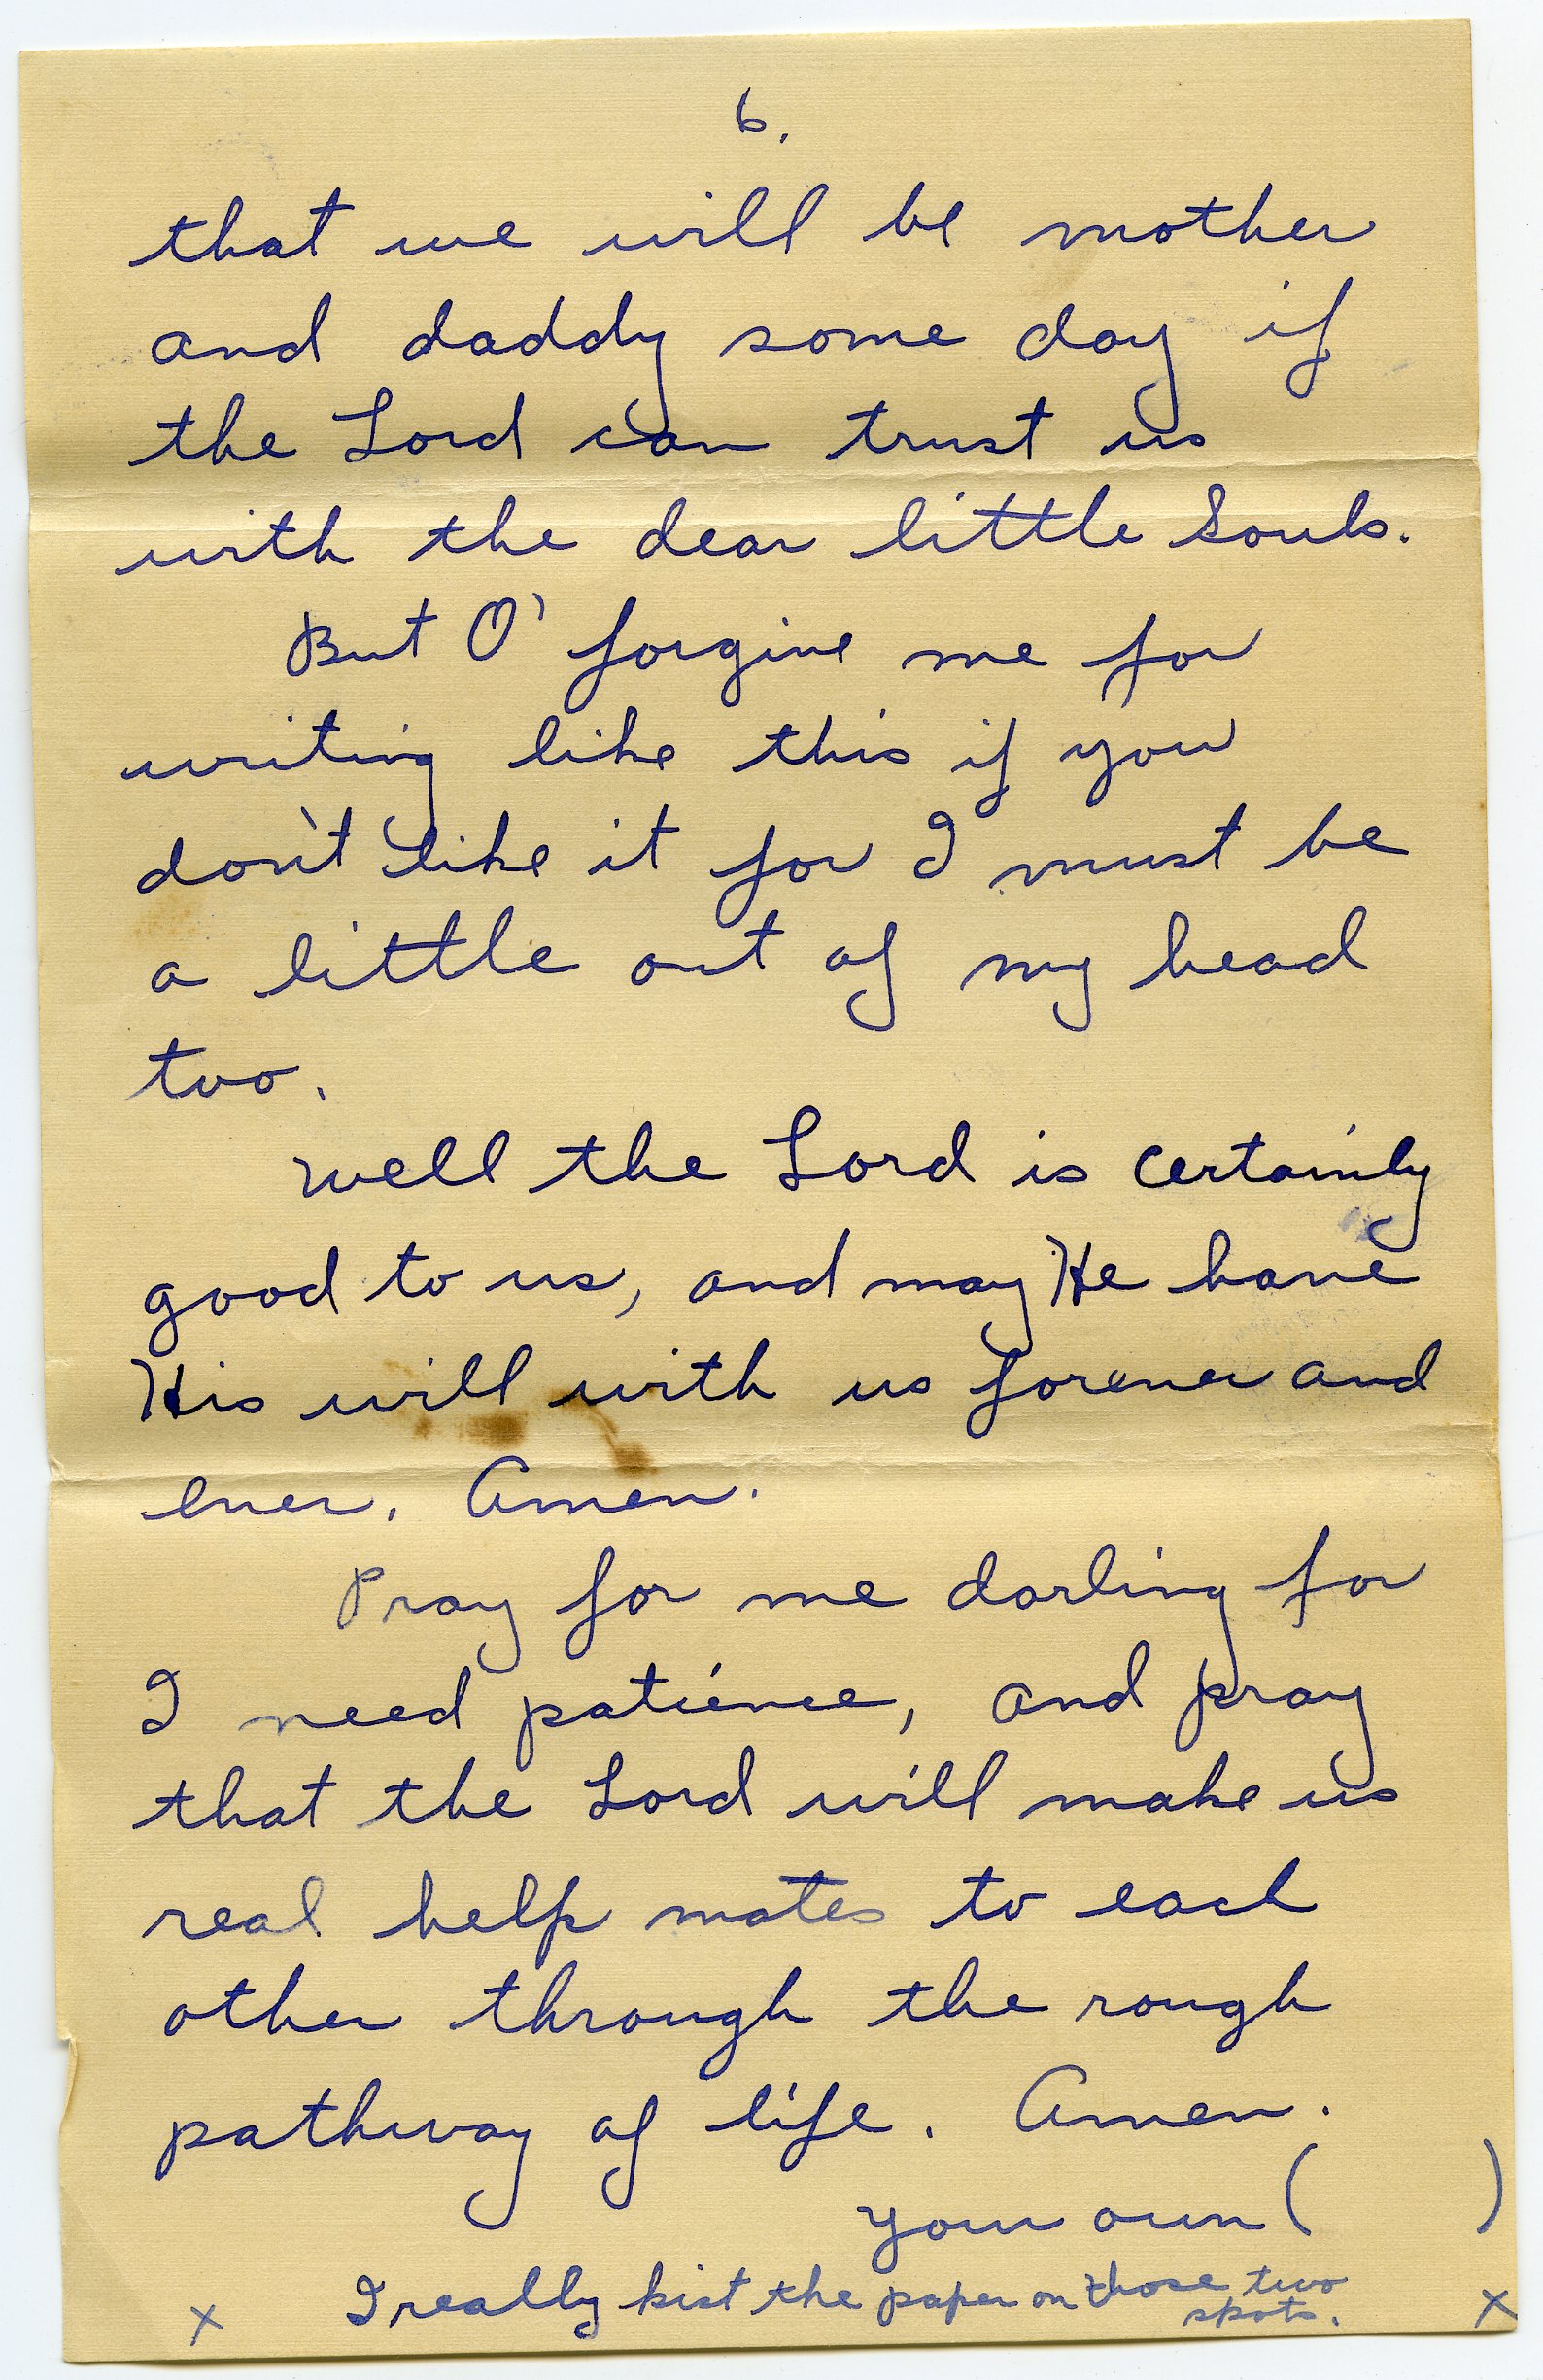 6.
that we will be mother
and daddy some day if
the Lord can trust us
with the dear little Souls.
But O' forgive me for
writing like this if you
don't like it for I must be
a little out of my head
too.
Well the Lord is certainly
good to us, and may He have
His will with us forever and
ever. Amen.
Pray for me darling for
I need patience, and pray
that the Lord will make us
real help mates to each
other through the rough
pathway of life. Amen.
your own (     )
x I really kist the paper on those two x
spots.